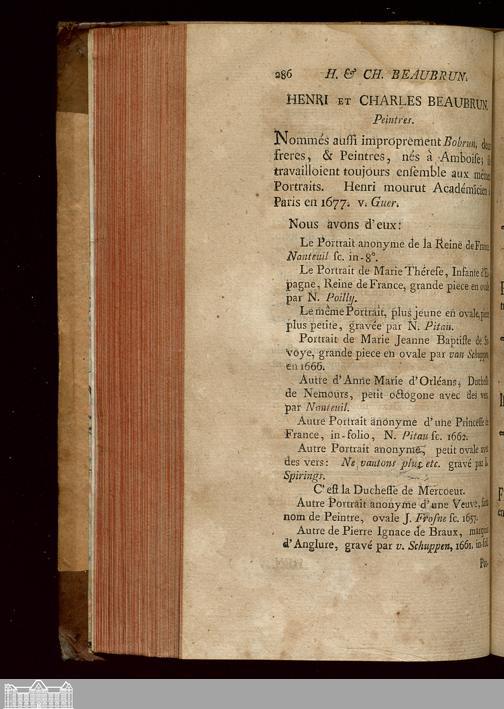 286 H. & CH. BEAUBRUN.
HENRI ET CHARLES BEAUBRUN.
Peintres.
Nommés auſſi improprement Bobrun,
freres, & Peintres, nés à Amboiſe;
travailloient toujours enſemble aux
Portraits. Henri mourut Académicien
Paris en 1677. v. Guer.
Nous avons d'eux:
Le Portrait anonyme de la Reine de
Nanteuil ſc. in-8°.
Le Portrait de Marie Théreſe, Infante
pagne, Reine de France, grande piece en
par N. Poilly.
Le même Portrait, plus jeune en ovale,
plus petite, gravée par N. Pitau.
Portrait de Marie Jeanne Baptiſte de
voye, grande piece en ovale par van
en 1666.
Autre d'Anne Marie d'Orléans,
de Nemours, petit octogone avec des
par Nanteuil.
Autre Portrait anonyme d'une Princeſſe
France, in-folio, N. Pitau ſc. 1662.
Autre Portrait anonyme, petit ovale
des vers: Ne vantons plus etc. gravé par
Spirings.
C'eſt la Ducheſſe de Mercoeur.
Autre Portrait anonyme d'une Veuve,
nom de Peintre, ovale J. Froſne ſc. 1657.
Autre de Pierre Ignace de Braux,
d'Anglure, gravé par v. Schuppen, 1661.